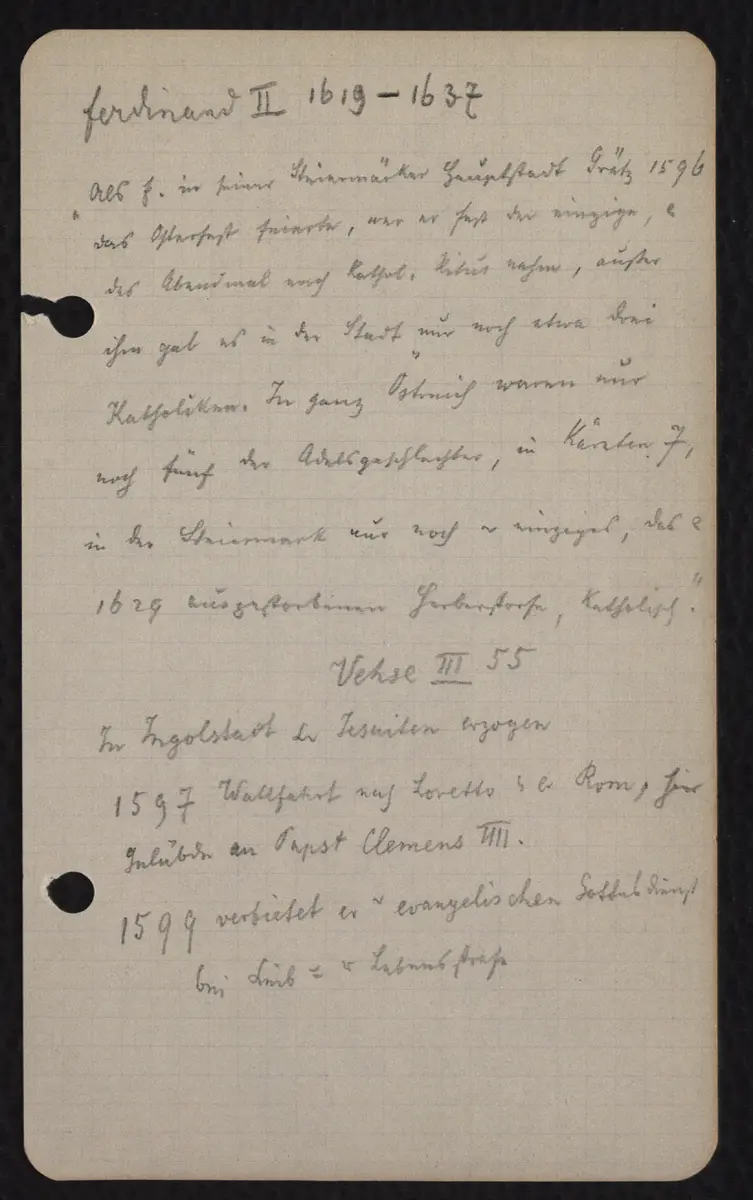 Ferdinand II 1619 – 1637
"Als F. in seiner Steiermärker Hauptstadt Grätz 1596
das Osterfest feierte, war er fast der einzige, der
das Abendmal nach Kathol. Ritus nahm, außer
ihm gab es in der Stadt nur noch etwa drei
Katholiken. In ganz Östreich waren nur
noch fünf der Adelsgeschlechter, in Kärnten 7,
in der Steiermark nur noch ein einziges, das
1629 ausgestorbenen Herberstorfe, Katholisch."
Vehse III 55
In Ingolstadt Jesuiten erzogen
1597 Wallfahrt nach Loretto Rom, hier
Gelübde an Papst Clemens VIII.
1599 verbietet er evangelischen Gottesdienst
bei Leib Lebensstrafe